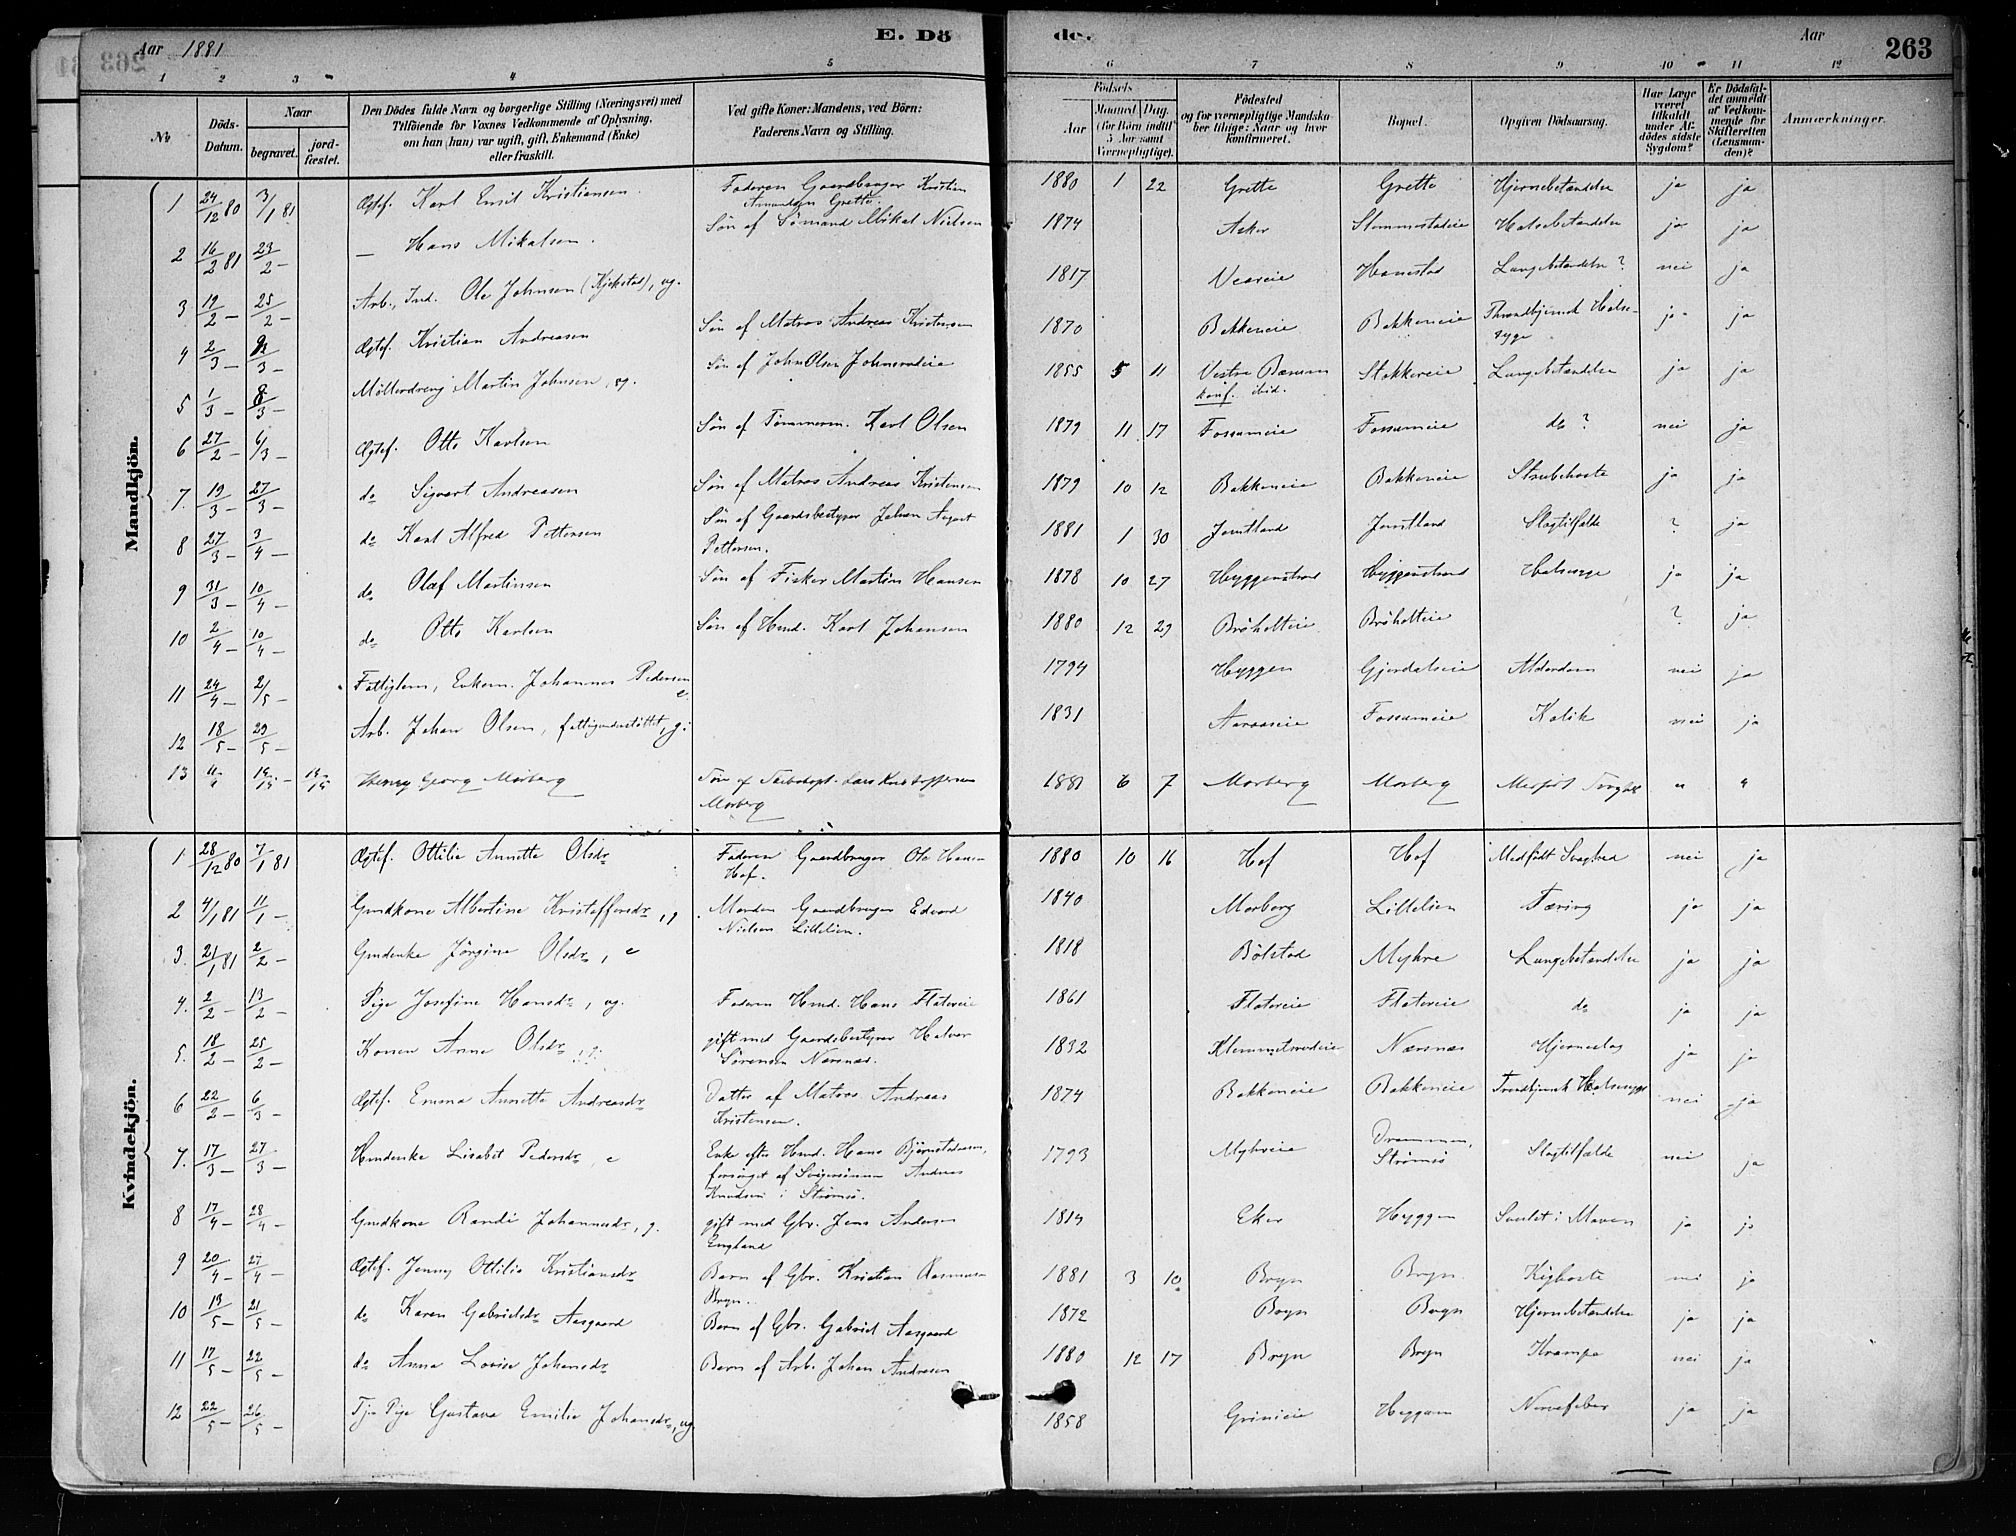 Aar 1881
E. Dö
de.
Aar
263
1 2 3 4 5 6 7 8 9 10 11 12
№
Döds-Datum.
Naar
begravet.
jord-fæstet.
Den Dödes fulde Navn og borgerlige Stilling (Næringsvei) med
Tilföiende for Voxnes Vedkommende af Oplysning,
om han (hun) var ugift, gift, Enkemand (Enke)
eller fraskilt.
Ved gifte Koner: Mandens, ved Börn:
Faderens Navn og Stilling.
Födsels
Aar
Maaned. Dag.
(for Börn indtil
5 Aar samt
Værnepligtige).
Födested
og for værnepligtige Mandska-
ber tillige: Naar og hvor
konfirmeret.
Bopæl.
Opgiven Dödsaarsag.
Har Læge
været
tilkaldt
under Af-
dödes sidste
Sygdom?
Er Dödsfal-
det anmeldt
af Vedkom-
mende for
Skifteretten
(Lensman-
den)?
Anmærkninger.
Mandkjön.
1 24/12 80 3/1 81 Ægtef. Karl Emil Kristiansen. Faderen Gaardbruger Kristian Amundsen Grette. 1880 1 22 Grette Grette Hjernebetændelse ja ja
2 16/2 81 23/2 – — Hans Mikalsen. Søn af Sømand Mikal Nielsen 1874 Asker Slemmestadeie Halsebetændelse ja ja
3 19/2 – 25/2 – Arb., Ind. Ole Johnsen (Kjekstad), ug. 1817 Veareie Hanestad Lungebetændelse? nei ja
4 2/3 – /3 – Ægtef. Kristian Andreasen Søn af Matros Andreas Kristensen 1870 Bakkeneie Bakkeneie Throndhjemsk Halse-syge ja ja
5 1/3 – 8/3 – Möllerdreng Martin Johnsen, ug. Søn af John Olsen Johnsrudeie 1855 5 11 Vestre Bærum konf. ibid. Stokkereie Lungebetændelse ja ja
6 27/2 – 6/3 – Ægtef. Otto Karlsen Søn af Tømmerm. Karl Olsen 1879 11 17 Fossumeie Fossumeie do? nei ja
7. 19/3 – 27/3 – do Sigvart Andreasen Søn af Matros Andreas Kristensen 1879 10 12 Bakkeneie Bakkeneie Strubehoste ja ja
8 27/3 – 3/4 – do Karl Alfred Pettersen Søn af Gaardsbestyrer Johan August Pettersen. 1881 1 30 Jerntland Jerntland Slagtilfælde ? ja
9 31/3 – 10/4 – do Olaf Martinsen Søn af Fisker Martin Hansen 1878 10 27 Hyggenstrand Hyggenstrand Halsesyge ja ja
10 2/4 – 10/4 – do Otto Karlsen Søn af Hmd. Karl Johansen 1880 12 29 Bröholteie Bröholteie ? ja
11 24/4 – 2/5 – Fattiglem, Enkem. Johannes Pedersen e 1794 Hyggen Gjerdalseie Alderdom nei ja
12 18/5 – 29/5 – Arb. Johan Olsen, fattigunderstöttet, g. 1831 Aaraaseie Fossumeie Kolik nei ja
13 Henry Georg Morberg Søn af Lars Kristoffersen Morberg 1881 6 7 Morberg Morberg Medfødt Svaghed " "
Kvindekjön.
1 28/12 80 7/1 81 Ægtef. Ottilie Annette Olsdr Faderen Gaardbruger Ole Hansen Hof. 1880 10 16 Hof Hof Medfødt Svaghed nei ja
2 4/1 81 11/1 – Gmdkone Albertine Kristoffersdr, g. Manden Gaardbruger Edvard Nielsen Lillelien. 1840 Morberg Lillelien Tæring ja ja
3. 21/1 81 2/2 – Gmdenke Jørgine Olsdr, e 1818 Bölstad Myhre Lungebetændelse ja ja
4. 2/2 – 13/2 – Pige Josefine Hansdr, ug. Faderen Hmd. Hans Flatereie 1861 Flatereie Flatereie do ja ja
5. 18/2 – 25/2 – Konen Anne Olsdr, g. gift med Gaardsbestyrer Halvor Sørensen Nærsnæs. 1832 Klemmetsrudeie Nærsnæs Hjerneslag ja ja
6 22/2 – 6/3 – Ægtef. Emma Annette Andreasdr Datter af Matros Andreas Kristensen. 1874 Bakkeneie Bakkeneie Trondhjemsk Halsesyge nei ja
7. 17/3 – 27/3 – Hmdenke Lisabet Pedersdr, e Enke efter Hmd. Hans Bjørnstadmoen, forsørget af Svigersønnen Andreas Knudsen i Strømsø. 1793 Myhreie Drammen, Strømsø Slagtilfælde nei ja
8 17/4 – 28/4 – Gmdkone Randi Johannesdr, g. gift med Gbr. Jens Andersen England 1814 Eker Hyggen Svulst i Maven ja ja
9 20/4 – 27/4 – Ægtef. Jenny Ottilie Kristiansdr Barn af Gbr. Kristian Rasmussen Bryn. 1881 3 10 Bryn Bryn Kighoste nei ja
10 13/5 – 21/5 – do Karen Gabrielsdr Aasgaard Barn af Gbr. Gabriel Aasgaard 1872 Bryn Bryn Hjernebetændelse ja ja
11 17/5 – 22/5 – do Anna Lovise Johansdr Barn af Arb. Johan Andresen 1880 12 17 Bryn Bryn Krampe nei ja
12 22/5 – 26/5 – Tj. Pige Gustava Emilie Johansdr, ug 1858 Grinieie Heggum Nervefeber ja ja